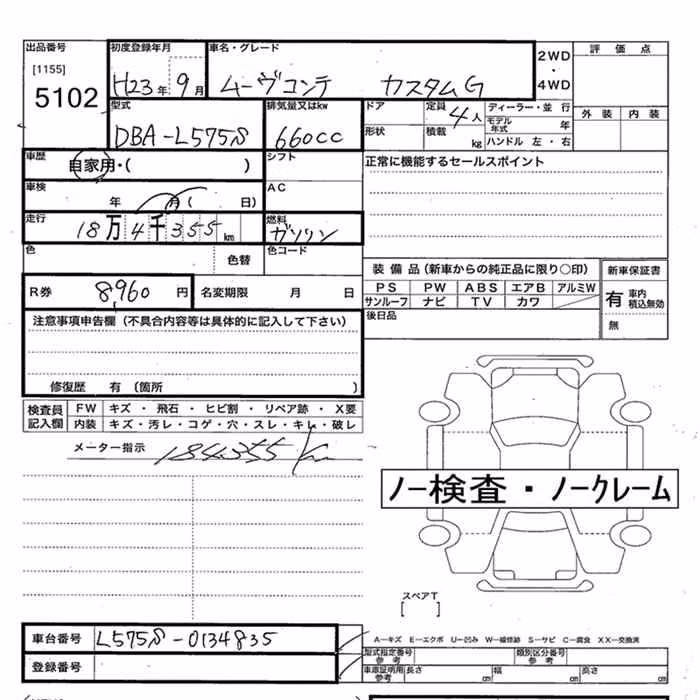 出品番号 初度登録年月 車名・グレード 2WD ・ 4WD 評価点
[1155]
5102 H23年9月 ムーヴコンテ カスタムG
型式 排気量又はkw ドア 定員 4人 ディーラー・並行 外装 内装
DBA-L575S 660cc 形状 積載 kg モデル年式 年
ハンドル 左・右
車歴 自家用・( ) シフト 正常に機能するセールスポイント
車検 年 月( 日) AC
走行 18万4千355km 燃料 ガソリン
色 色替 色コード
装備品(新車からの純正品に限り○印) 新車保証書
R券 8,960円 名変期限 月 日 PS PW ABS エアB アルミW 有 車内 積込無効
サンルーフ ナビ TV カワ
注意事項申告欄(不具合内容等は具体的に記入して下さい) 後日品 無
修復歴 有(箇所 )
検査員記入欄 FW キズ・飛石・ヒビ割・リペア跡・X要
内装 キズ・汚レ・コゲ・穴・スレ・キレ・破レ
メーター指示 184355km
ノー検査・ノークレーム
スペアT
[ ]
車台番号 L575S-0134835 A—キズ E—エクボ U—凹み W—補修跡 S—サビ C—腐食 XX—交換済
登録番号 型式指定番号 参考 類別区分番号 参考
車庫証明用 参考 長さ cm 幅 cm 高さ cm